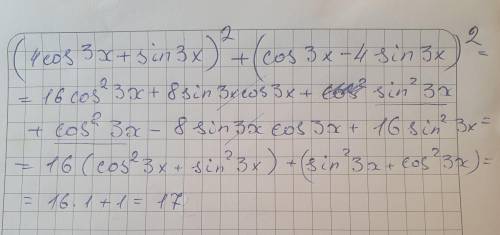 (4cos3x + sin3x)² + (cos3x - 4sin3x)² =
= 16cos²3x + 8sin3xcos3x + sin²3x
+ cos²3x - 8sin3x cos3x + 16sin²3x =
= 16(cos²3x + sin²3x) + (sin²3x + cos²3x) =
= 16.1 + 1 = 17